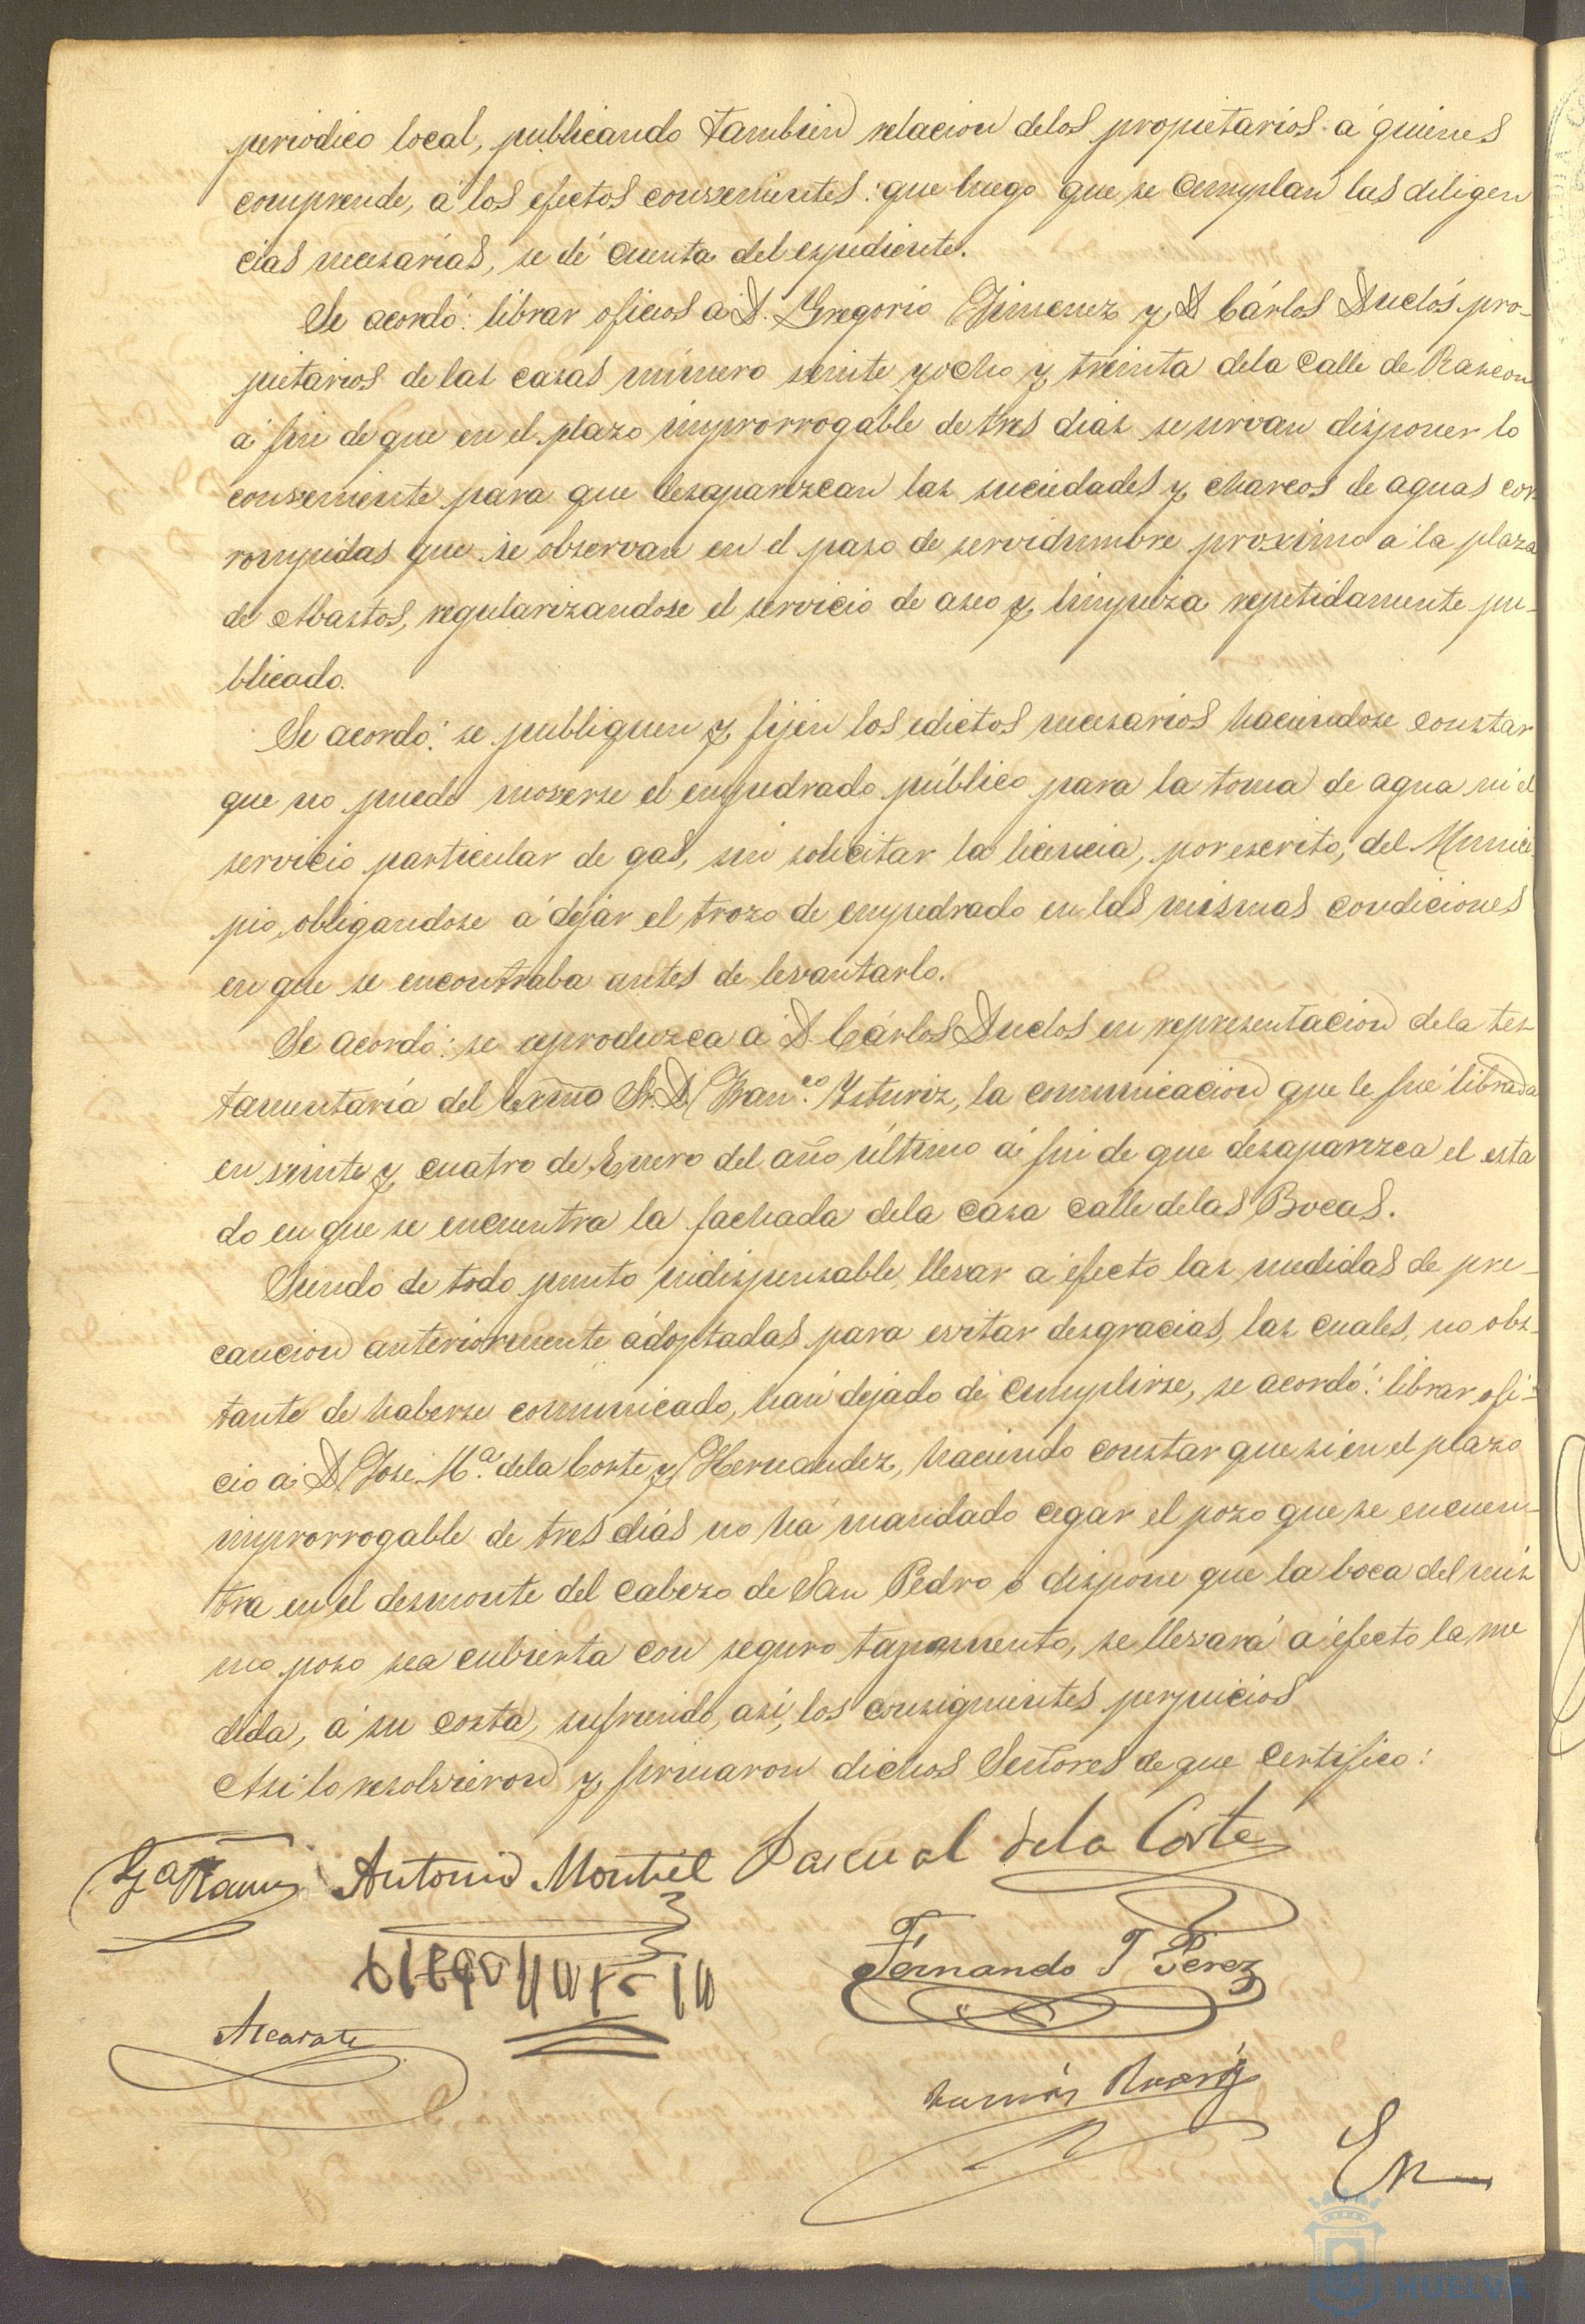 periodico local, publicando tambien relacion delos propietarios á quienes
comprende, á los efectos convenientes: que luego que se cumplan las diligen
cias necesarias, se dé cuenta del espediente.
Se acordó: librar oficios a D. Gregorio Jimenez y D Cárlos Duclós pro-
pietarios de las casas número veinte y ocho y treinta dela Calle de Rascon
á fin de que en el plazo improrrogable de tres dias se sirvan disponer lo
conveniente para que desaparezcan las suciedades y charcos de aguas cor
rompidas que se observan en el paso de servidumbre proximo á la plaza
de Abastos, regularizandose el servicio de aseo y limpieza repetidamente pu-
blicado.
Se acordó: se publiquen y fijen los edictos necesarios haciendose constar
que no puede moverse el empedrado público para la toma de agua ni el
servicio particular de gas, sin solicitar la licencia, por escrito, del Munici
pio, obligandose á dejar el trozo de empedrado en las mismas condiciones
en que se encontraba antes de levantarlo.
Se acordó: se reproduzca á D. Cárlos Duclos en representacion dela tes
tamentaría del Excmo Sr. D. Fran.co Ysturiz, la comunicacion que le fué librada
en veinte y cuatro de Enero del año último á fin de que desaparezca el esta
do en que se encuentra la fachada dela casa calle delas Bocas.
Siendo de todo punto indispensable, llevar á efecto las medidas de pre-
caucion anteriormente adoptadas para evitar desgracias, las cuales, no obs-
tante de haberse comunicado, han dejado de cumplirse, se acordó: librar ofi-
cio á D. Jose M.a dela Corte y Hernandez, haciendo constar que si en el plazo
improrrogable de tres dias no há mandado cegar el pozo que se encuen-
tra en el desmonte del cabezo de San Pedro o dispone que la boca del mis
mo pozo sea cubierta con seguro tapamento, se llevará á efecto la me
dida, á su costa, sufriendo, asi, los consiguientes perjuicios
Asi lo resolvieron y firmaron dichos Señores de que certifico:
Antonio Montiel Pascual dela Corte
Fernando T Perez
Alcarate
En
HUELVA